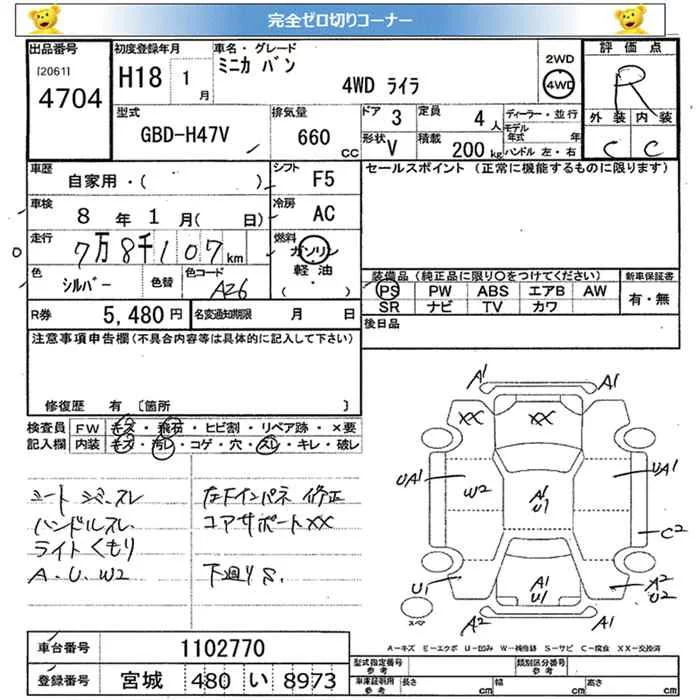 完全ゼロ切りコーナー
出品番号
[2061]
4704
初度登録年月
H18 1月
車名・グレード
ミニカ バン
4WD ライラ
2WD
4WD
評価点
R
外装 内装
C C
型式
GBD-H47V
排気量
660 CC
ドア 3
定員 4 人
形状 V
積載 200 kg
ディーラー・並行
モデル年式 年
ハンドル 左・右
車歴
自家用・( )
シフト
F5
セールスポイント (正常に機能するものに限ります)
車検
8 年 1 月( 日)
冷房
AC
走行
7万8千107 km
燃料
ガソリン
軽油
( ・ )
色
シルバー
色替
色コード
A26
装備品 (純正品に限り○をつけてください)
新車保証書
PS PW ABS エアB AW
SR ナビ TV カワ
有・無
R券 5,480 円
名変通知期限 月 日
後日品
注意事項申告欄 (不具合内容等は具体的に記入して下さい)
修復歴 有 〔箇所 〕
検査員 FW キズ・飛石・ヒビ割・リペア跡・×要
記入欄 内装 キズ・汚レ・コゲ・穴・スレ・キレ・破レ
シート シミ、スレ
ハンドルスレ
ライトくもり
A.U.W2
左Fインパネ 修正
コアサポートXX
下廻りS.
A1 A1
XX XX
UA1 W2 A1 U1 UA1
C2
U1 A1 U1 A2 U2
A2 A1
スペア
A-キズ E-エクボ U-凹み W-補修跡 S-サビ C-腐食 XX-交換済
車台番号 1102770
登録番号 宮城 480 い 8973
型式指定番号 参考
類別区分番号 参考
車庫証明用 参考
長さ cm 幅 cm 高さ cm